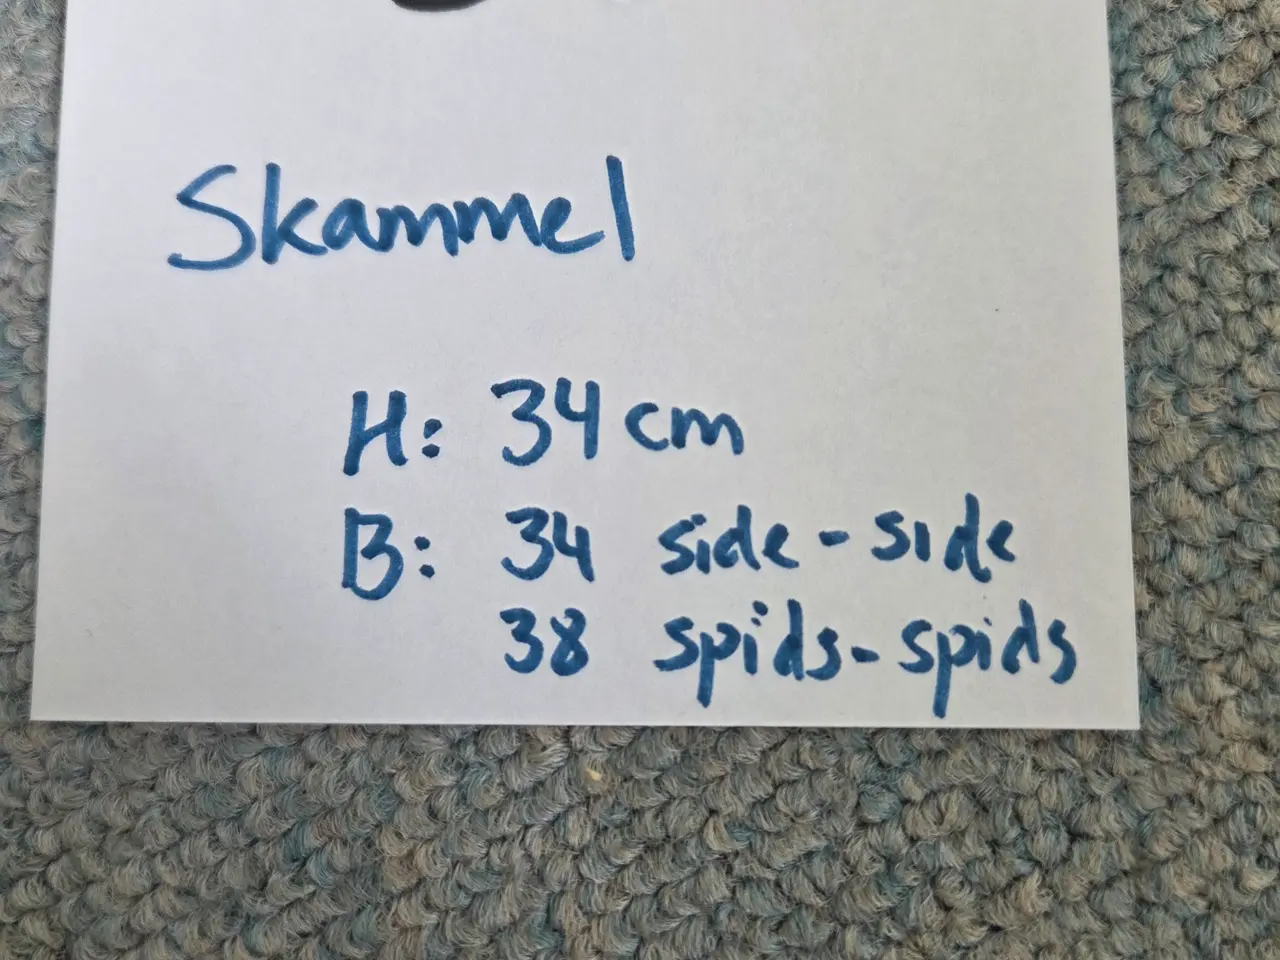 Skammel
H: 34 cm
B: 34 side-side
38 spids-spids